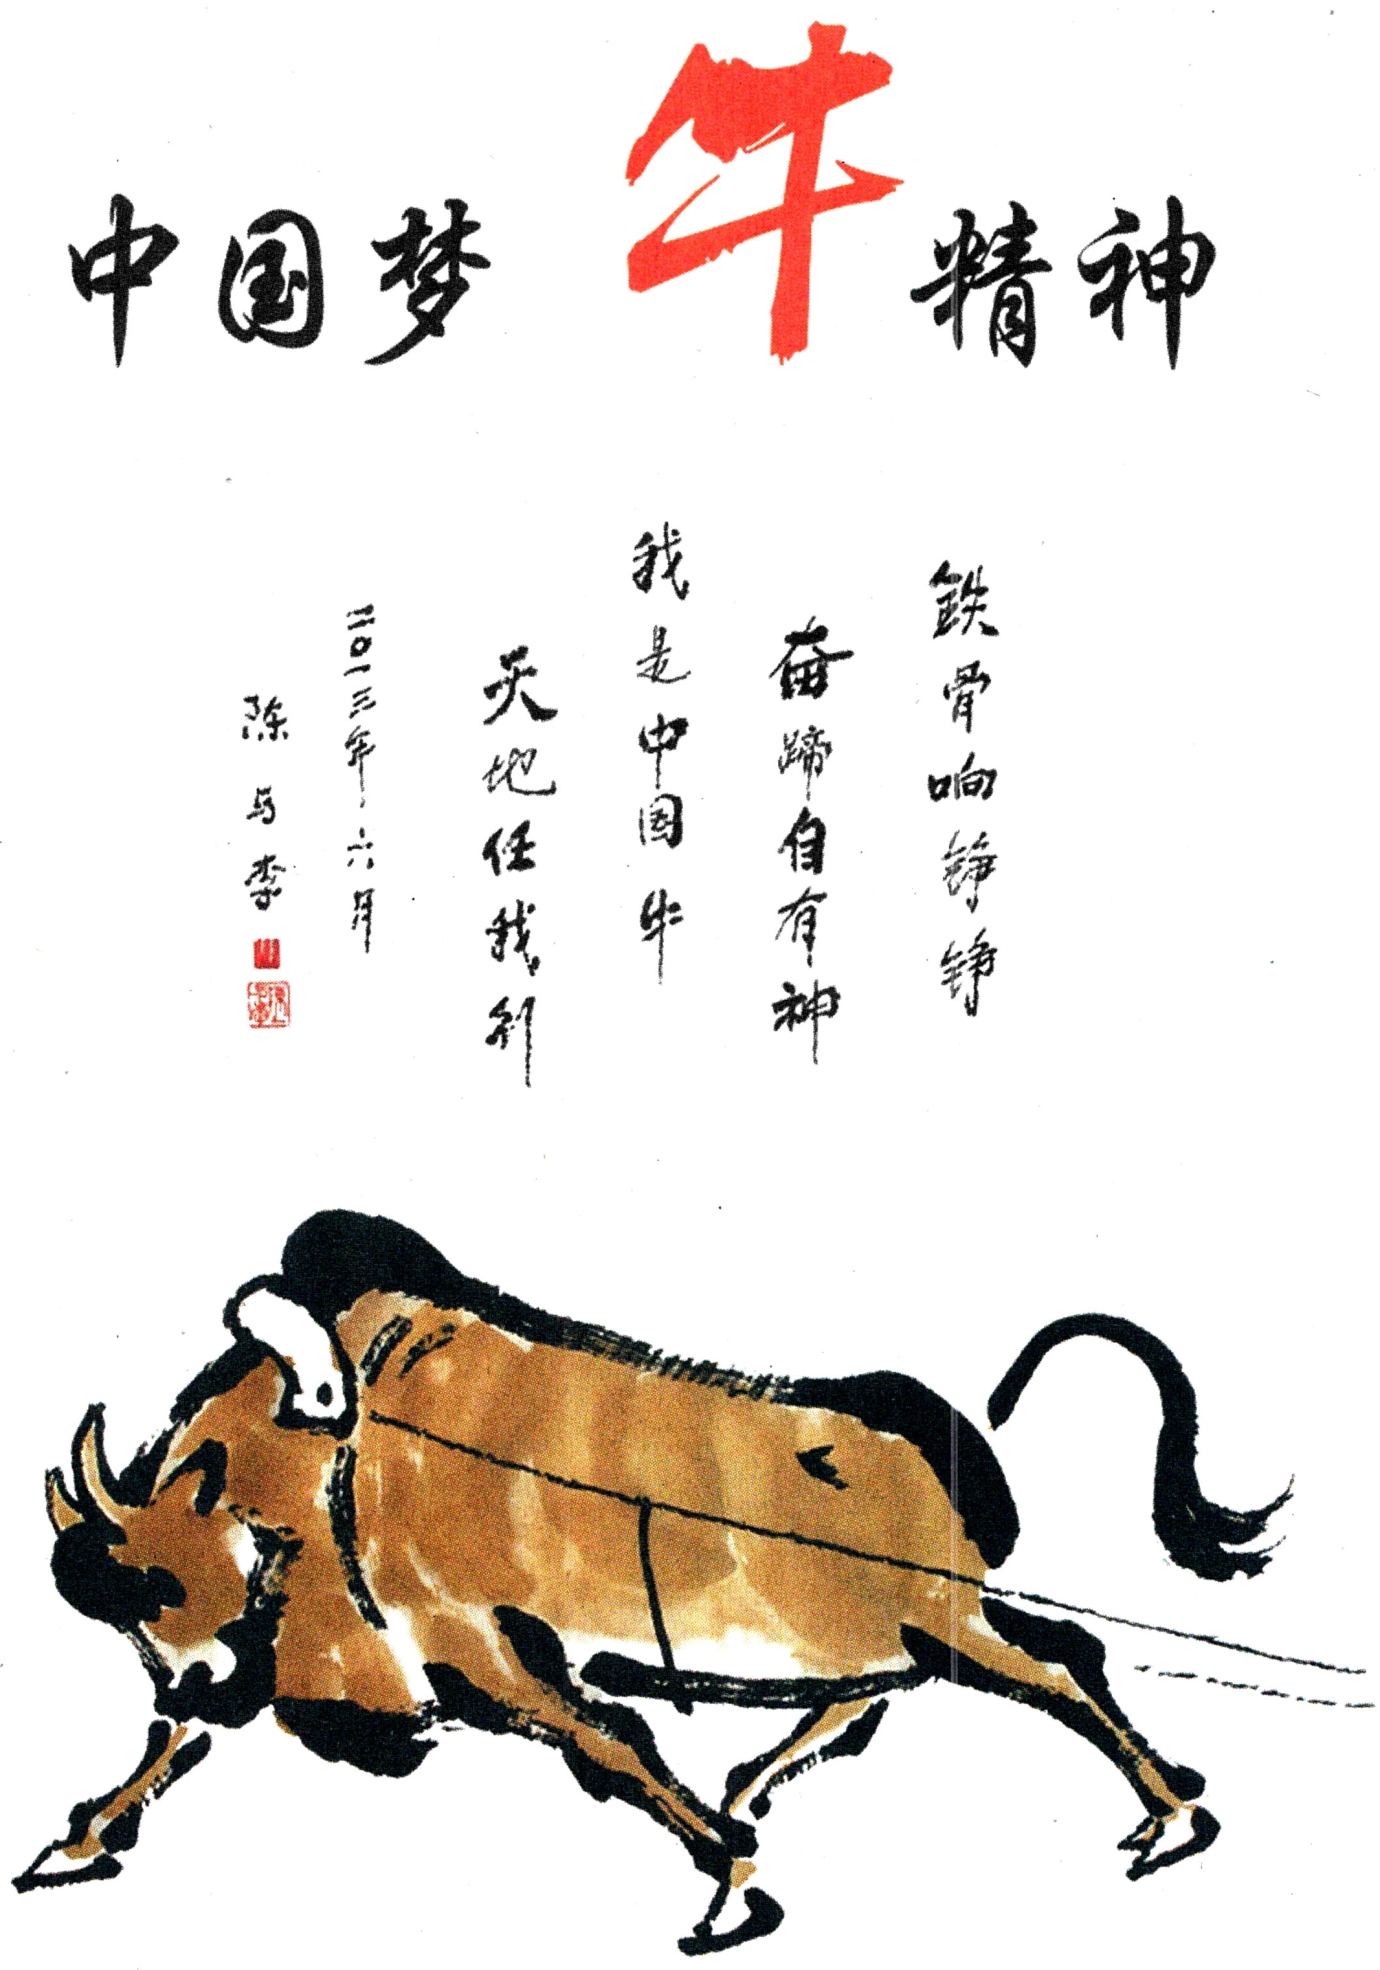 中国梦 牛 精神
铁骨响铮铮
奋蹄自有神
我是中国牛
天地任我行
二〇一三年六月
陈马李